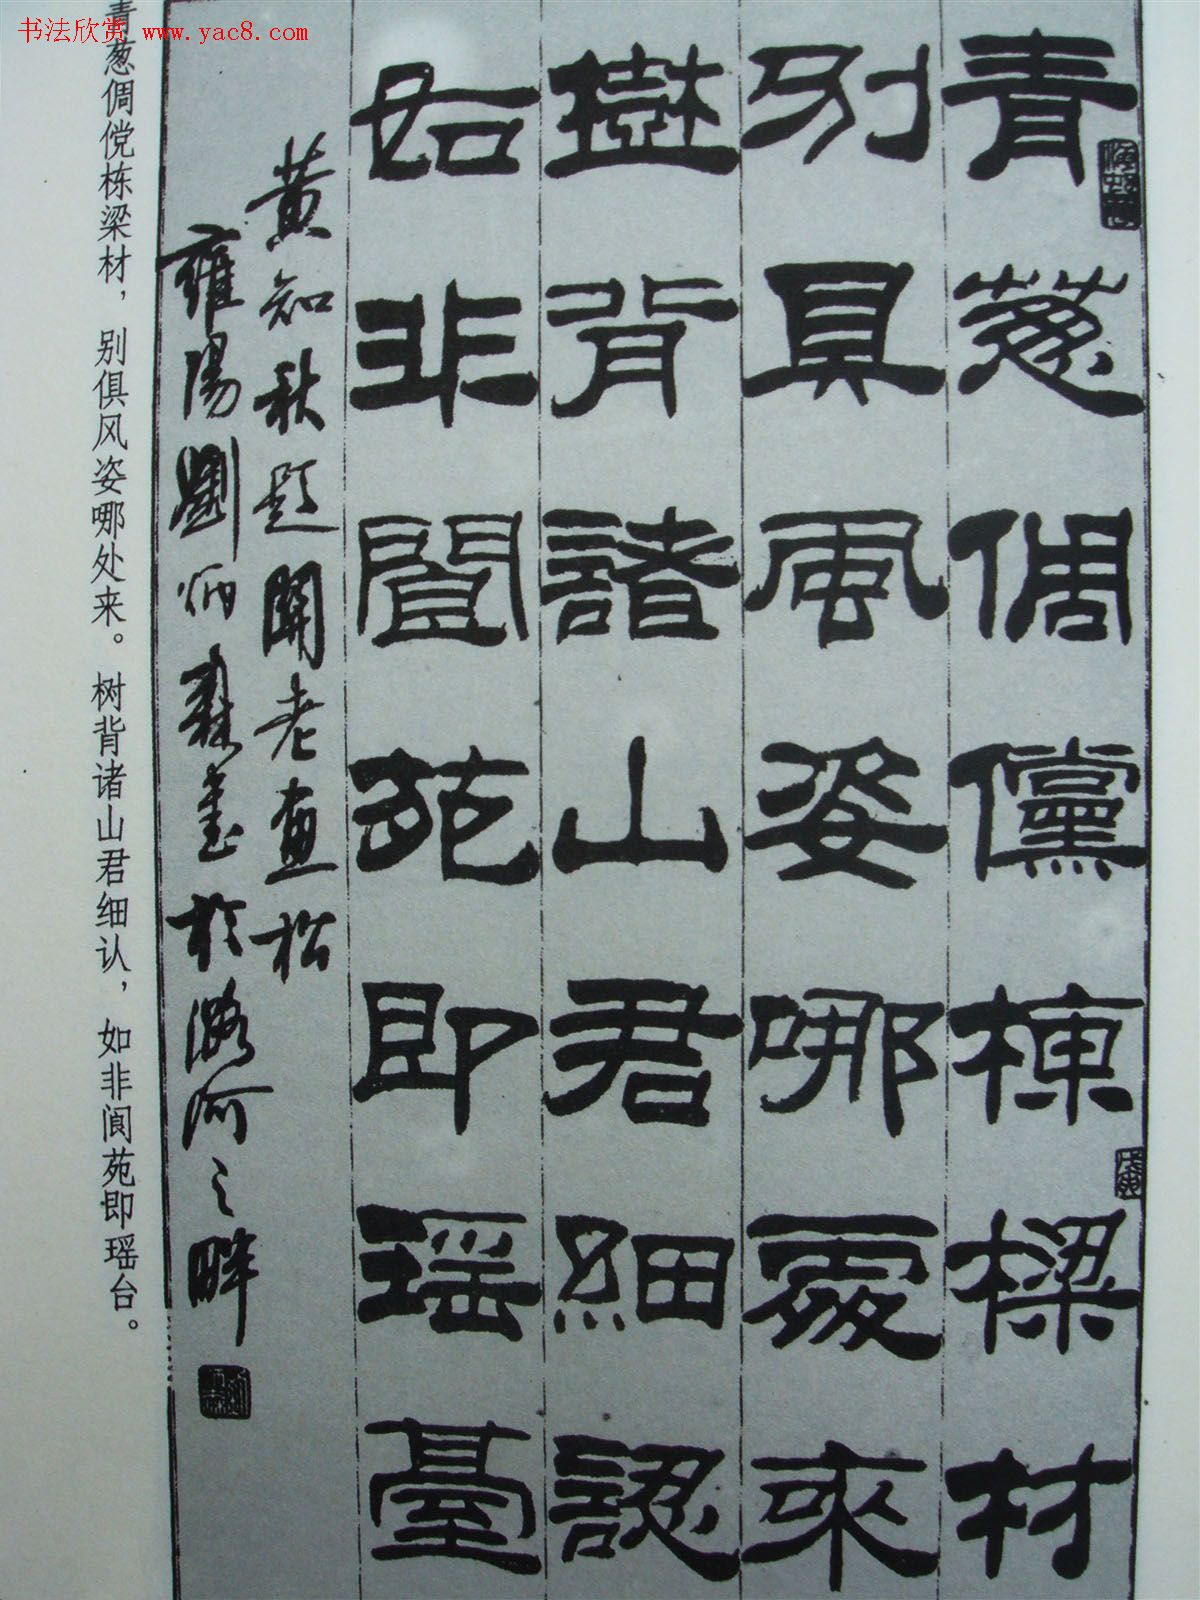 书法欣赏 www.yac8.com
青葱倜儻棟樑材
别具風姿哪處來
樹背諸山君細認
如非閬苑即瑶臺
黄知秋題關老畫松
雍陽劉炳森書於潞河之畔
青葱倜傥栋梁材，别俱风姿哪处来。树背诸山君细认，如非阆苑即瑶台。